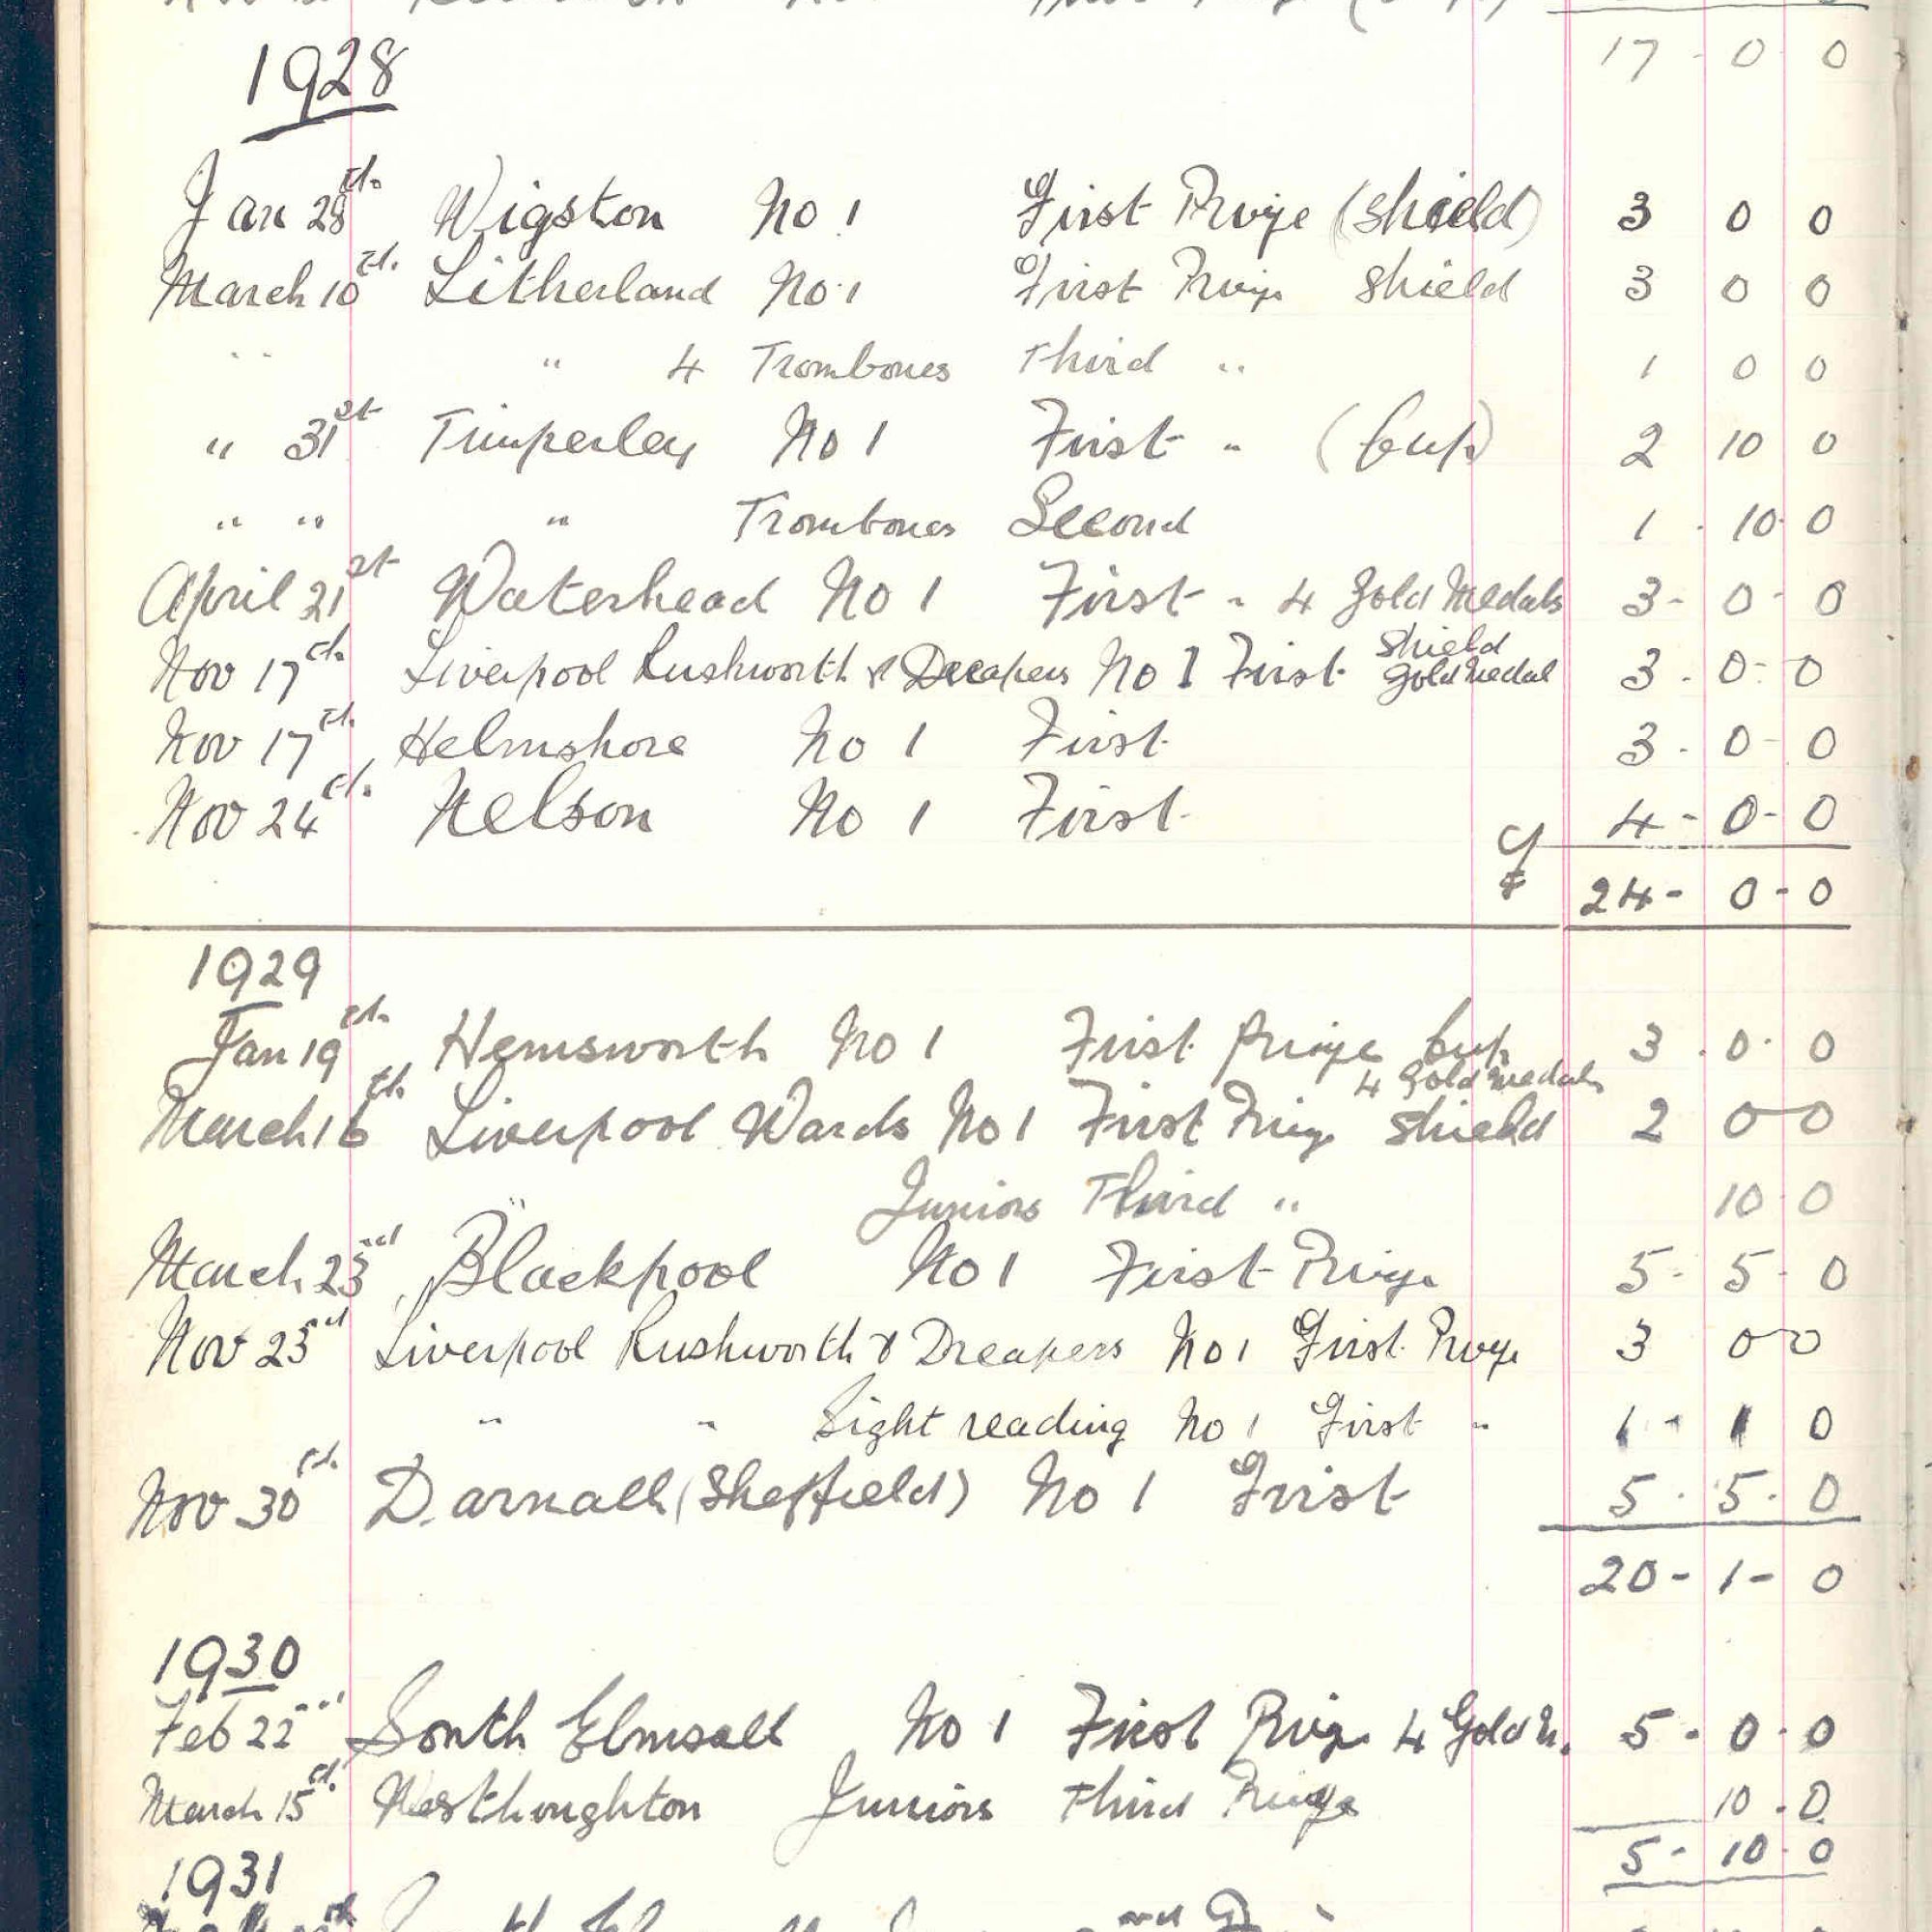 17 - 0 - 0
1928
Jan 28th Wigston No 1 First Prize (Shield) 3 0 0
March 10th Litherland No 1 First Prize Shield 3 0 0
" " " 4 Trombones Third " 1 0 0
" 31st Timperley No 1 First " (Cup) 2 10 0
" " " Trombones Second 1 - 10 - 0
April 21st Waterhead No 1 First " 4 Gold Medals 3 - 0 - 0
Nov 17th Liverpool Rushworth & Dreapers No 1 First Shield Gold Medal 3 - 0 - 0
Nov 17th Helmshore No 1 First 3 - 0 - 0
Nov 24th Nelson No 1 First 4 - 0 - 0
24 - 0 - 0
1929
Jan 19th Hemsworth No 1 First Prize Cup 3 - 0 - 0
4 Gold Medals
March 16th Liverpool Wards No 1 First Prize Shield 2 0 0
" Juniors Third " 10 0
March 23rd Blackpool No 1 First Prize 5 - 5 - 0
Nov 23rd Liverpool Rushworth & Dreapers No 1 First Prize 3 0 0
" " Sight reading No 1 First " 1 - 1 0
Nov 30th Darnall (Sheffield) No 1 First 5 - 5 - 0
20 - 1 - 0
1930
Feb 22nd South Elmsall No 1 First Prize 4 Gold M. 5 - 0 - 0
March 15th Westhoughton Juniors Third Prize 10 - 0
5 - 10 - 0
1931